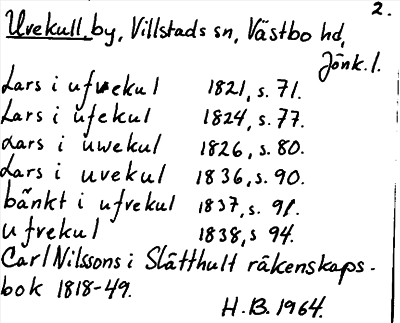 2.
Uvekull by, Villstads sn, Västbo hd,
Jönk. l.
Lars i ufvekul 1821, s. 71.
Lars i ufekul 1824, s. 77.
Lars i uwekul 1826, s. 80.
Lars i uvekul 1836, s. 90.
bänkt i ufvekul 1837, s. 91.
ufvekul 1838, s 94.
Carl Nilssons i Slätthult räkenskaps-
bok 1818-49.
H. B. 1964.